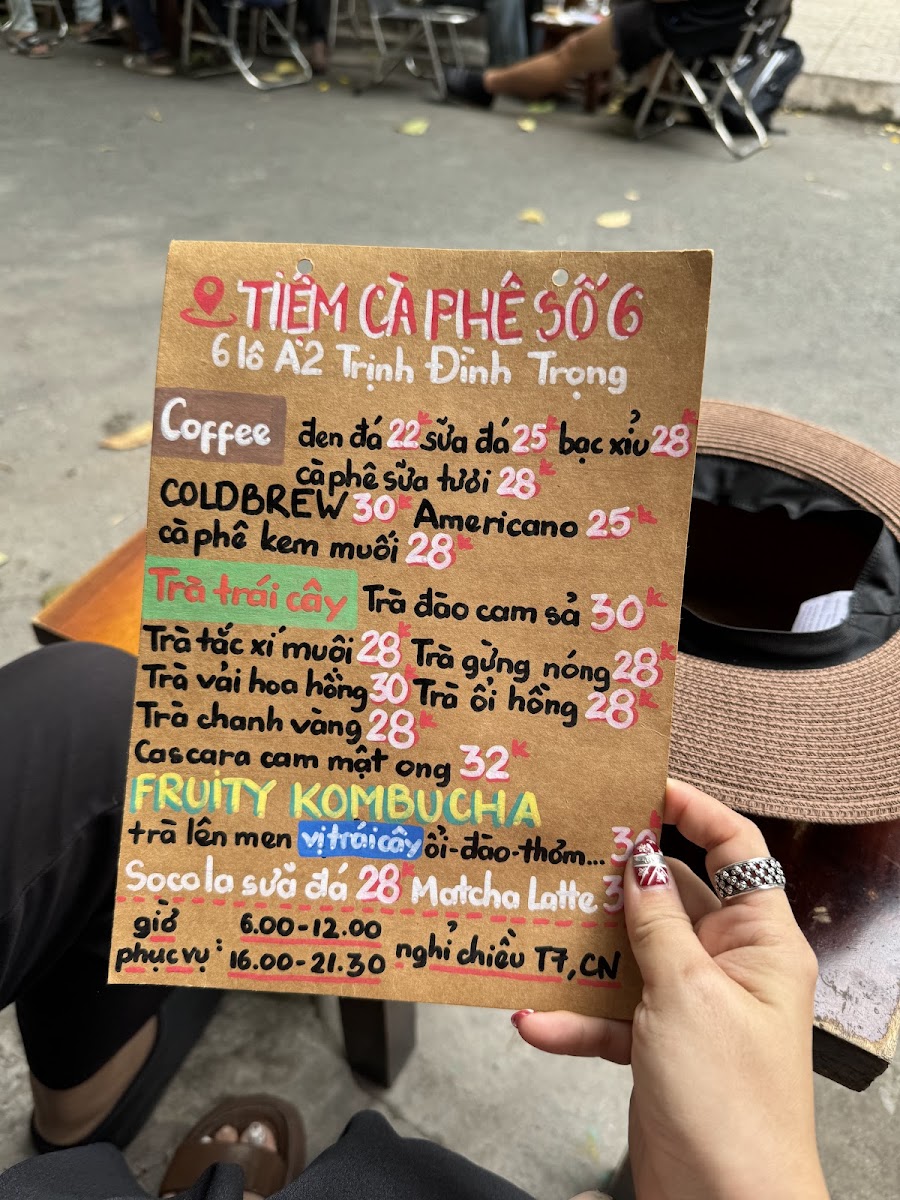 TIỆM CÀ PHÊ SỐ 6
6 lô A2 Trịnh Đình Trọng
Coffee đen đá 22k sữa đá 25k bạc xỉu 28k
cà phê sữa tươi 28k
COLDBREW 30k Americano 25k
cà phê kem muối 28k
Trà trái cây Trà đào cam sả 30k
Trà tắc xí muội 28k Trà gừng nóng 28k
Trà vải hoa hồng 30k Trà ổi hồng 28k
Trà chanh vàng 28k
Cascara cam mật ong 32k
FRUITY KOMBUCHA
trà lên men vị trái cây ổi-đào-thơm...
Socola sữa đá 28k Matcha Latte
giờ phục vụ: 6.00-12.00
16.00-21.30 nghỉ chiều T7, CN